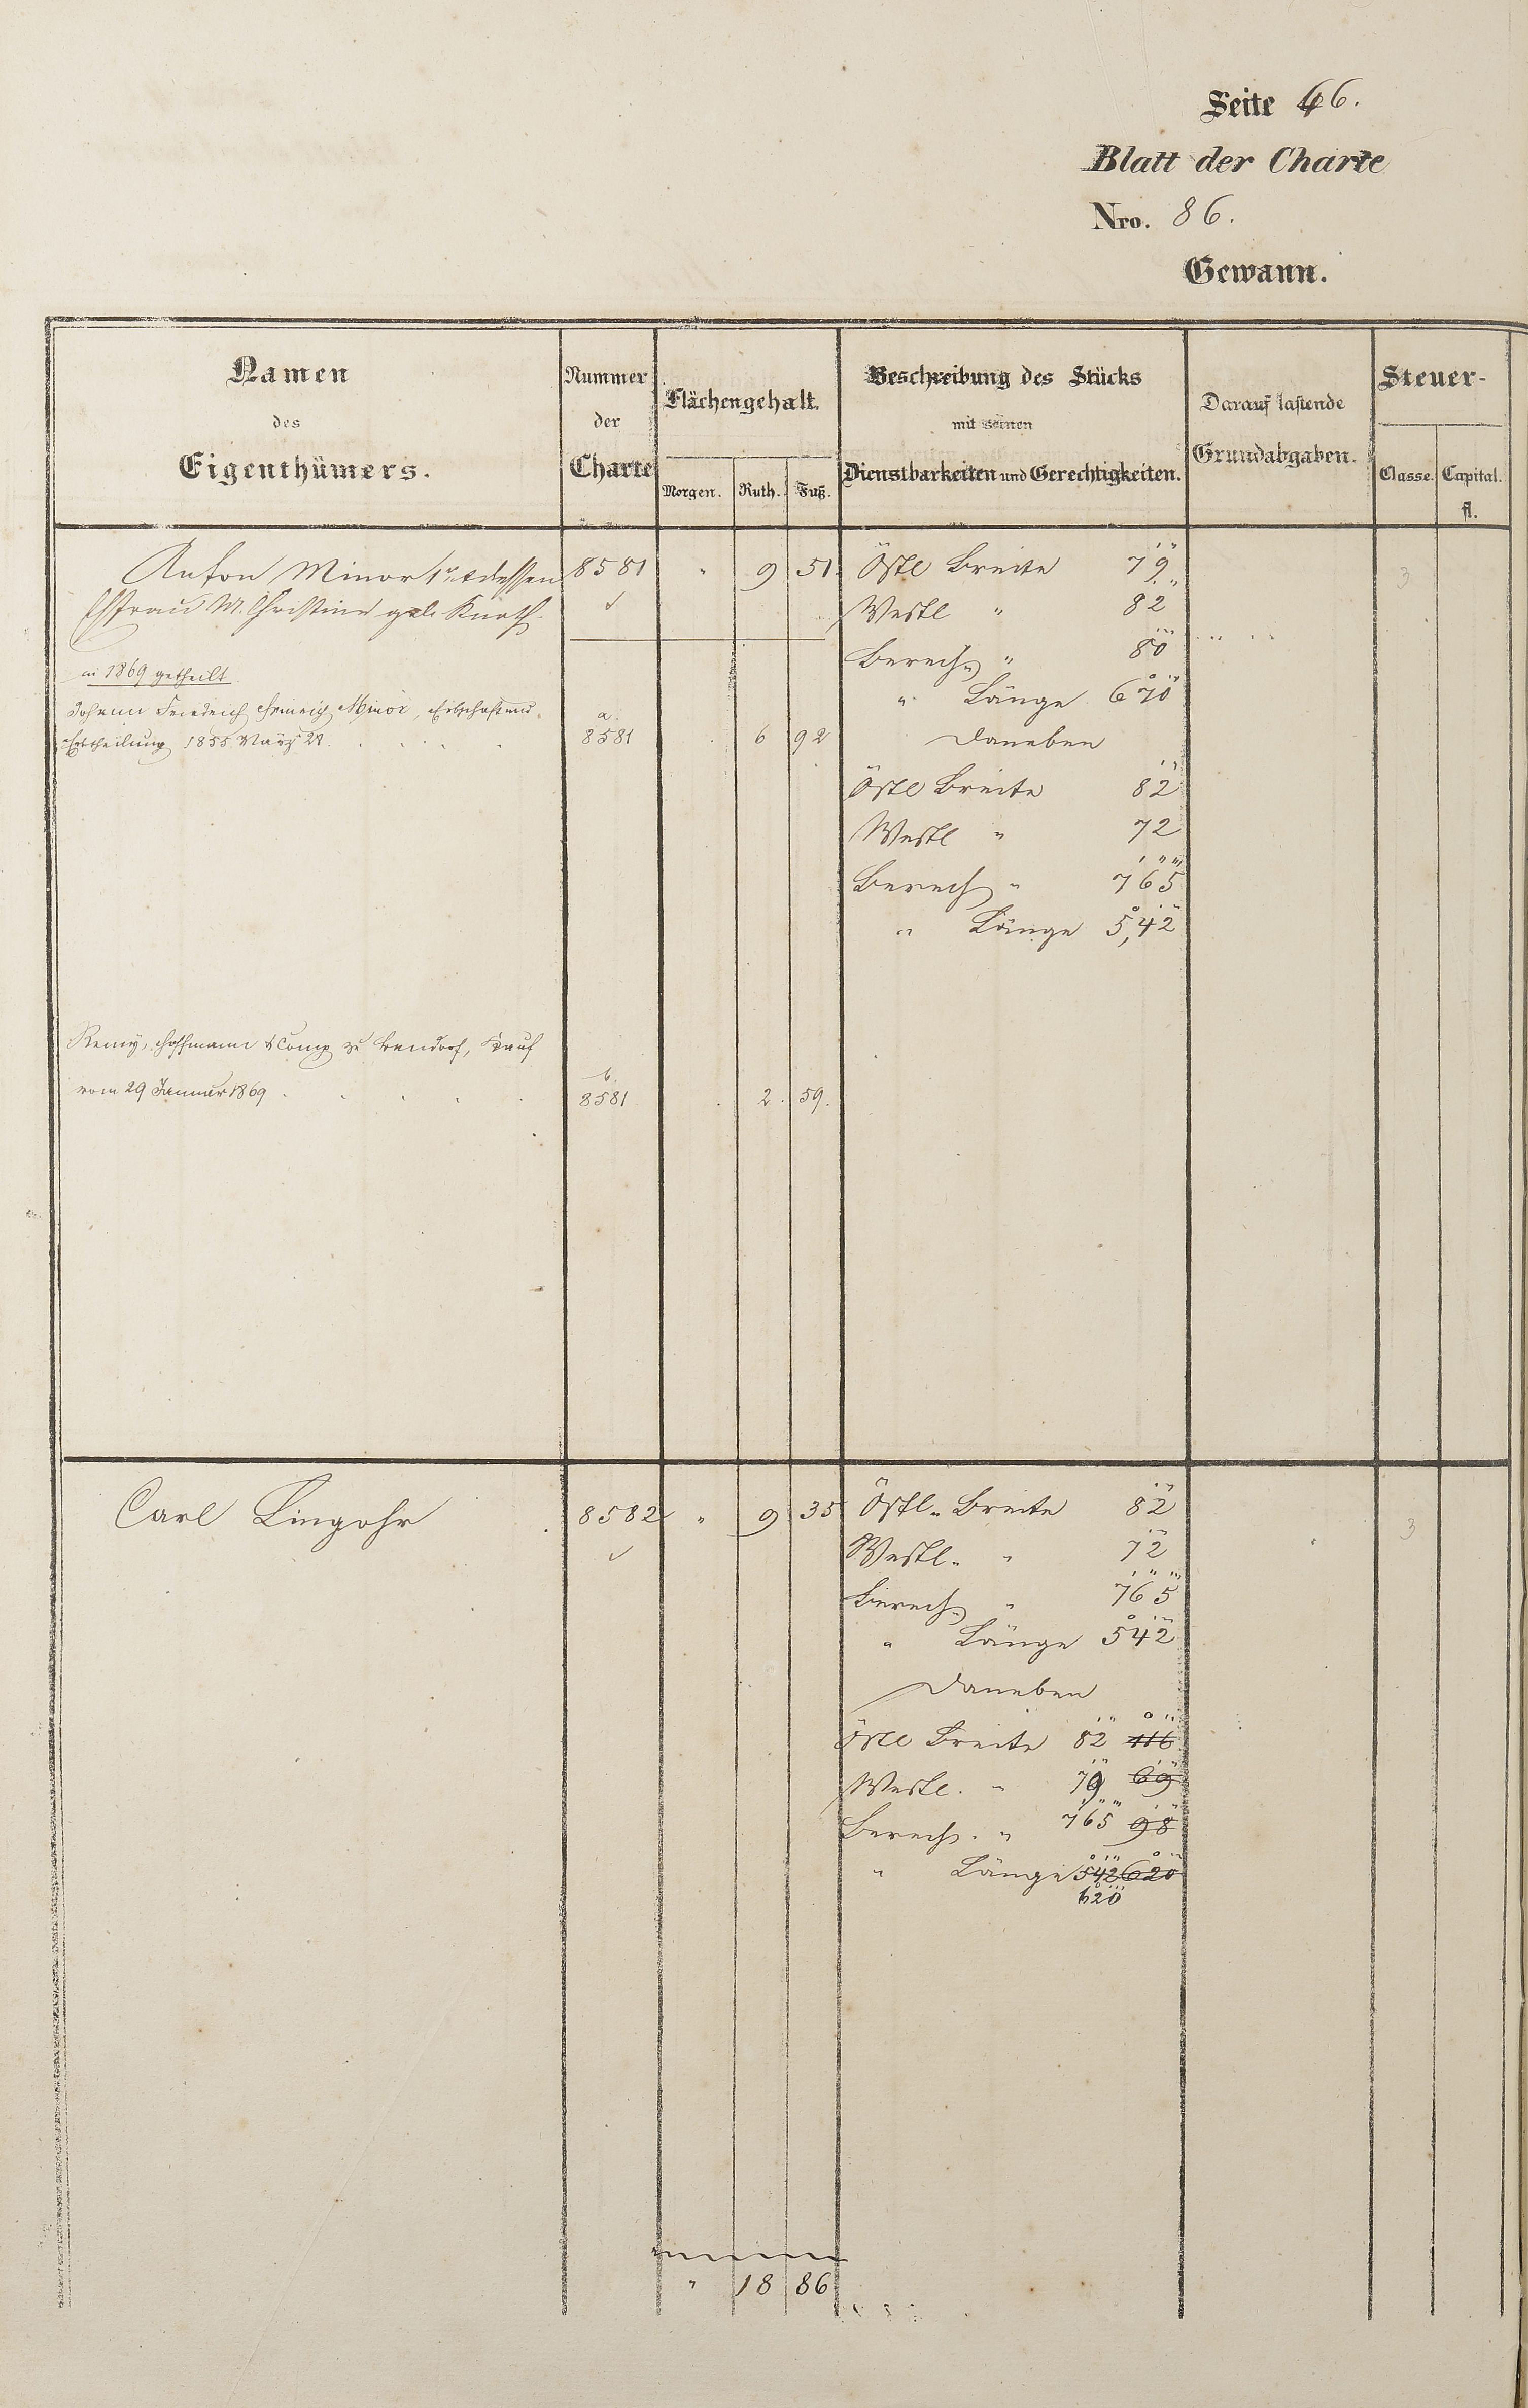 Seite 46.
Blatt der Charte
Nro. 86.
Gewann.
Namen
des
Eigenthümers.
Nummer
der
Charte
Flächengehalt.
Morgen. Ruth. Fuß.
Beschreibung des Stücks
mit seinen
Dienstbarkeiten und Gerechtigkeiten.
Darauf lastende
Grundabgaben.
Steuer-
Classe. Capital.
fl.
Anton Minor 1r & dessen 8581 " 9 51 Östl Breite 7' 9" 3
Ehfrau M. Christine geb. Knoth Westl " 8' 2"
Berech. " 8' 0"
" Länge 6° 7' 0"
in 1869 getheilt
Johann Friedrich Heinrich Minor, Erbschaft und
Erbtheilung 1855 März 21. a. 8581 6 92 Daneben
Östl Breite 8' 2"
Westl " 72
Berech " 7' 6" 5'"
" Länge 5,° 4' 2"
Remy, Hoffmann & Comp zu Bendorf, Kauf
vom 29 Januar 1869 b. 8581 2. 59.
Carl Lingohr 8582 " 9 35 Östl. Breite 8' 2" 3
Westl. " 7' 2"
Berech. " 7' 6" 5'"
" Länge 5° 4' 2"
Daneben
Östl Breite 8' 2" 1° 1' 6"
Westl. " 7' 9" 6' 9"
Berech. " 7' 6" 5'" 9' 8"
" Länge 5° 4' 2" 6° 2' 0"
6° 2' 0"
" 18 86